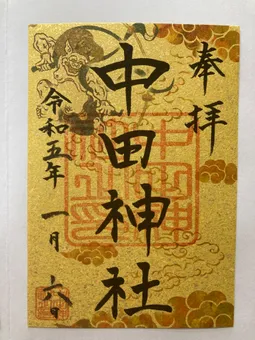 奉拝
中田神社
令和五年 一月 六日